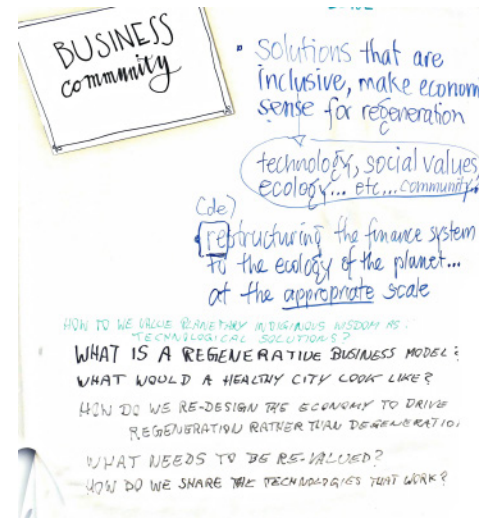 BUSINESS
community
• solutions that are
inclusive, make econom
sense for regeneration
technology, social values,
ecology... etc... community
(de)
restructuring the finance system
to the ecology of the planet...
at the appropriate scale
HOW TO WE VALUE PLANETARY INDIGINOUS WISDOM AS:
TECHNOLOGICAL SOLUTIONS?
WHAT IS A REGENERATIVE BUSINESS MODEL?
WHAT WOULD A HEALTHY CITY LOOK LIKE?
HOW DO WE RE-DESIGN THE ECONOMY TO DRIVE
REGENERATION RATHER THAN DEGENERATIO
WHAT NEEDS TO BE RE-VALUED?
HOW DO WE SHARE THE TECHNOLOGIES THAT WORK?